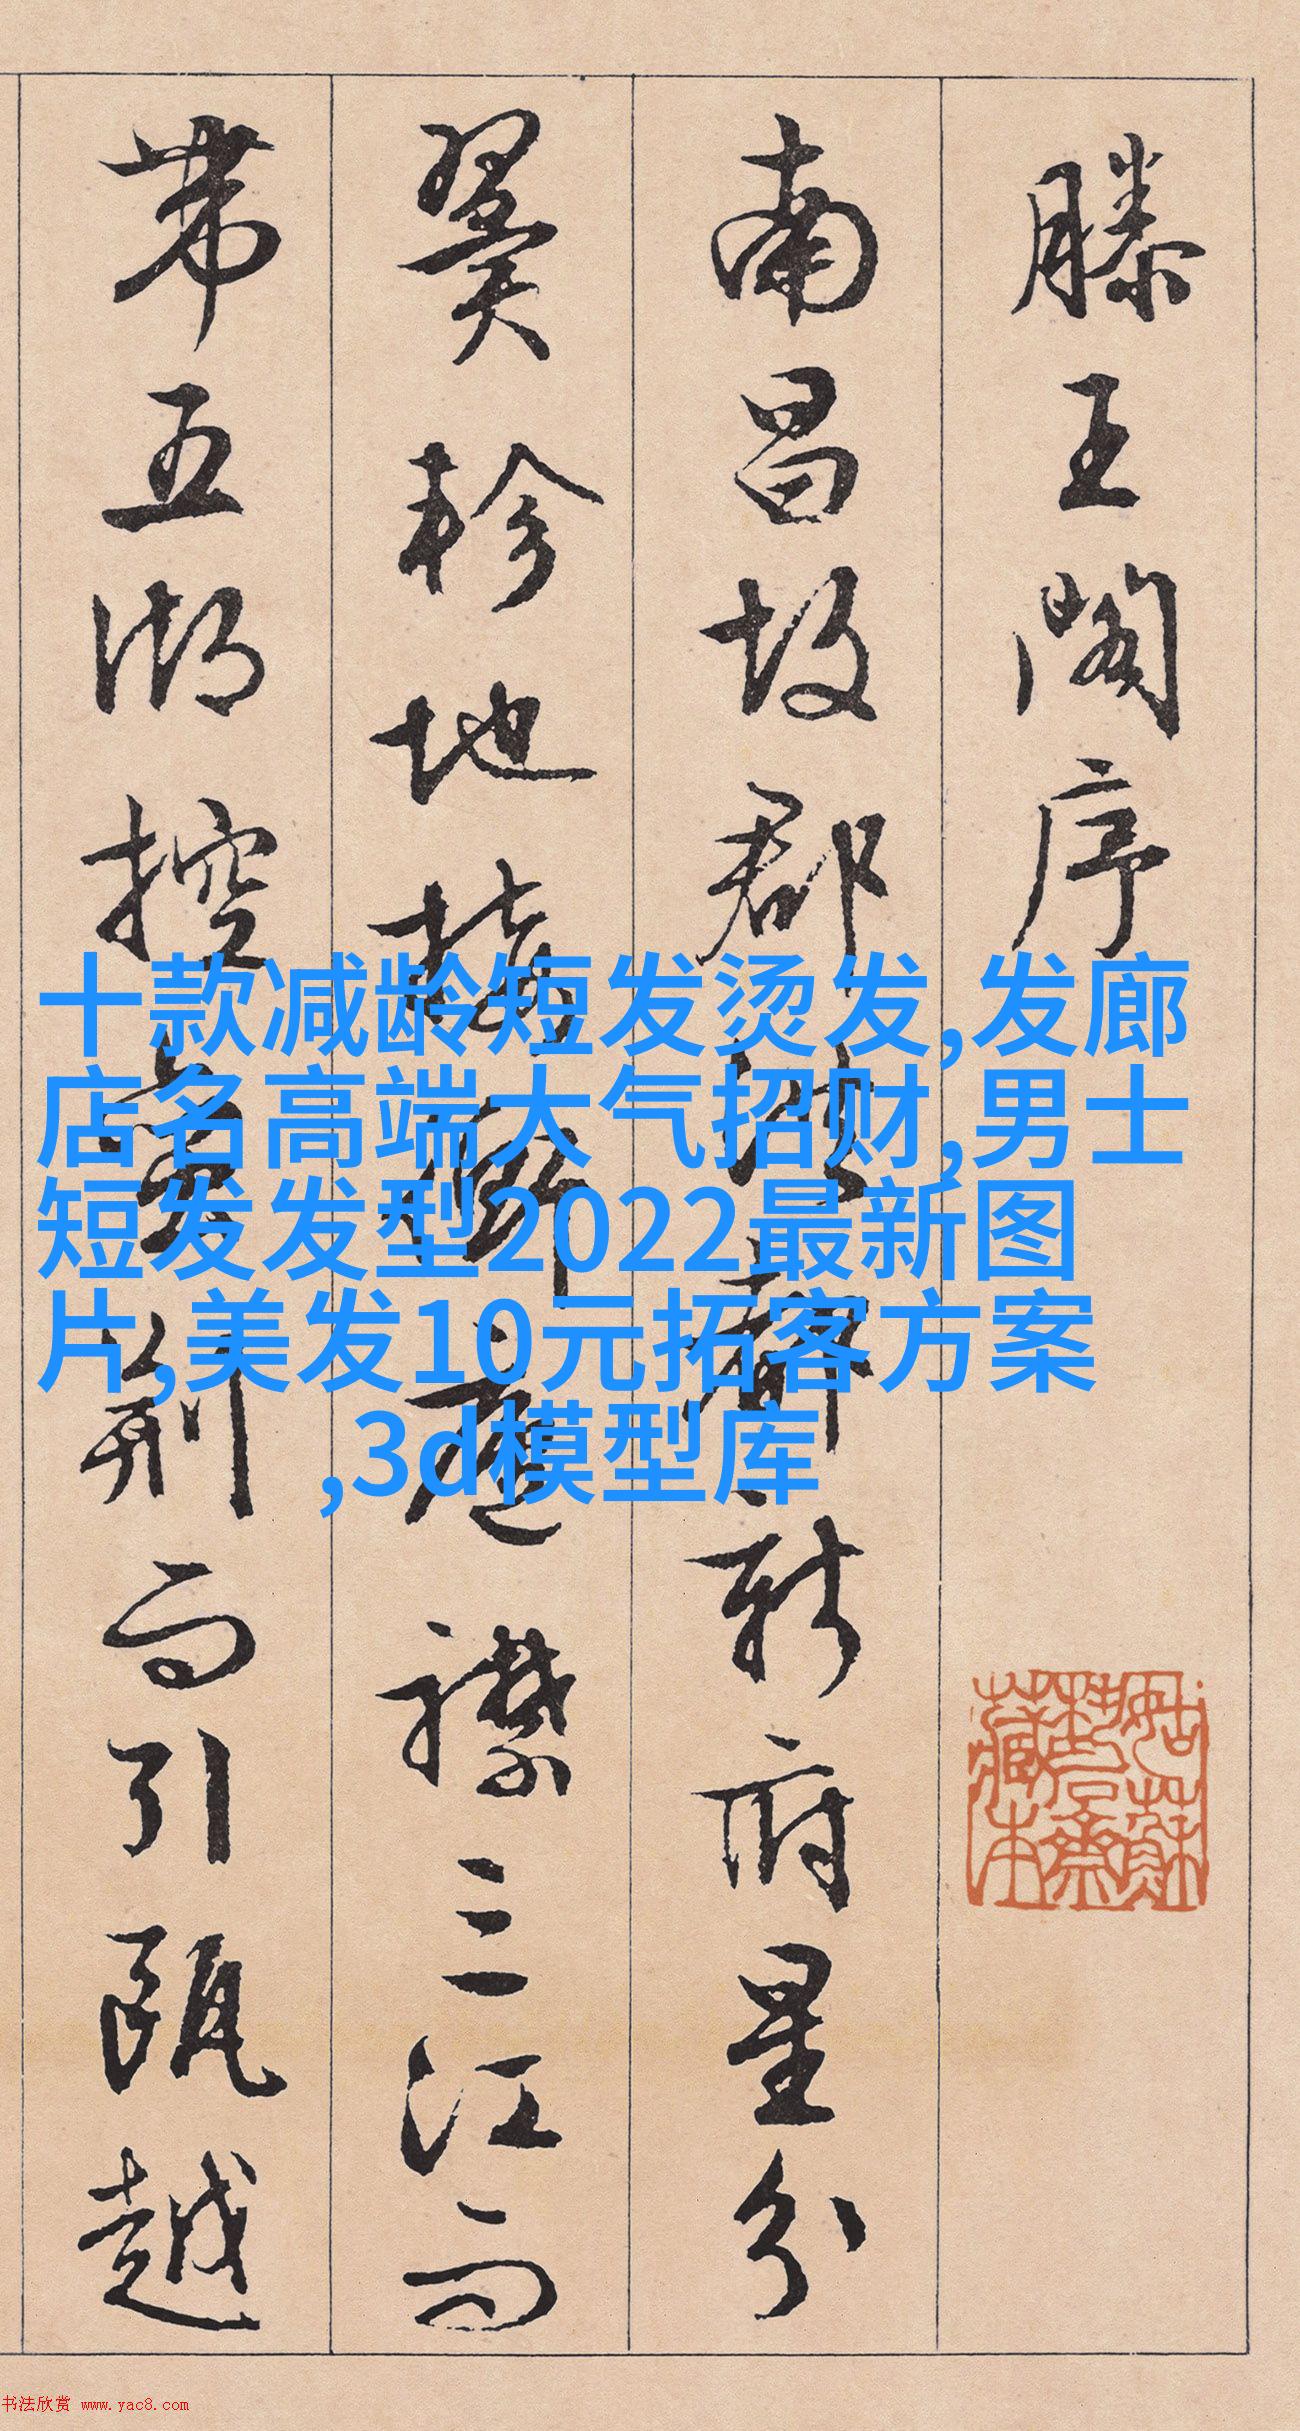 滕王閣序
南昌故郡洪都新府星分
翼軫地接衡廬襟三江而
帶五湖控蠻荊而引甌越
十款减龄短发烫发,发廊
店名高端大气招财,男士
短发发型2022最新图
片,美发10元拓客方案
,3d模型库
书法欣赏 www.yac8.com